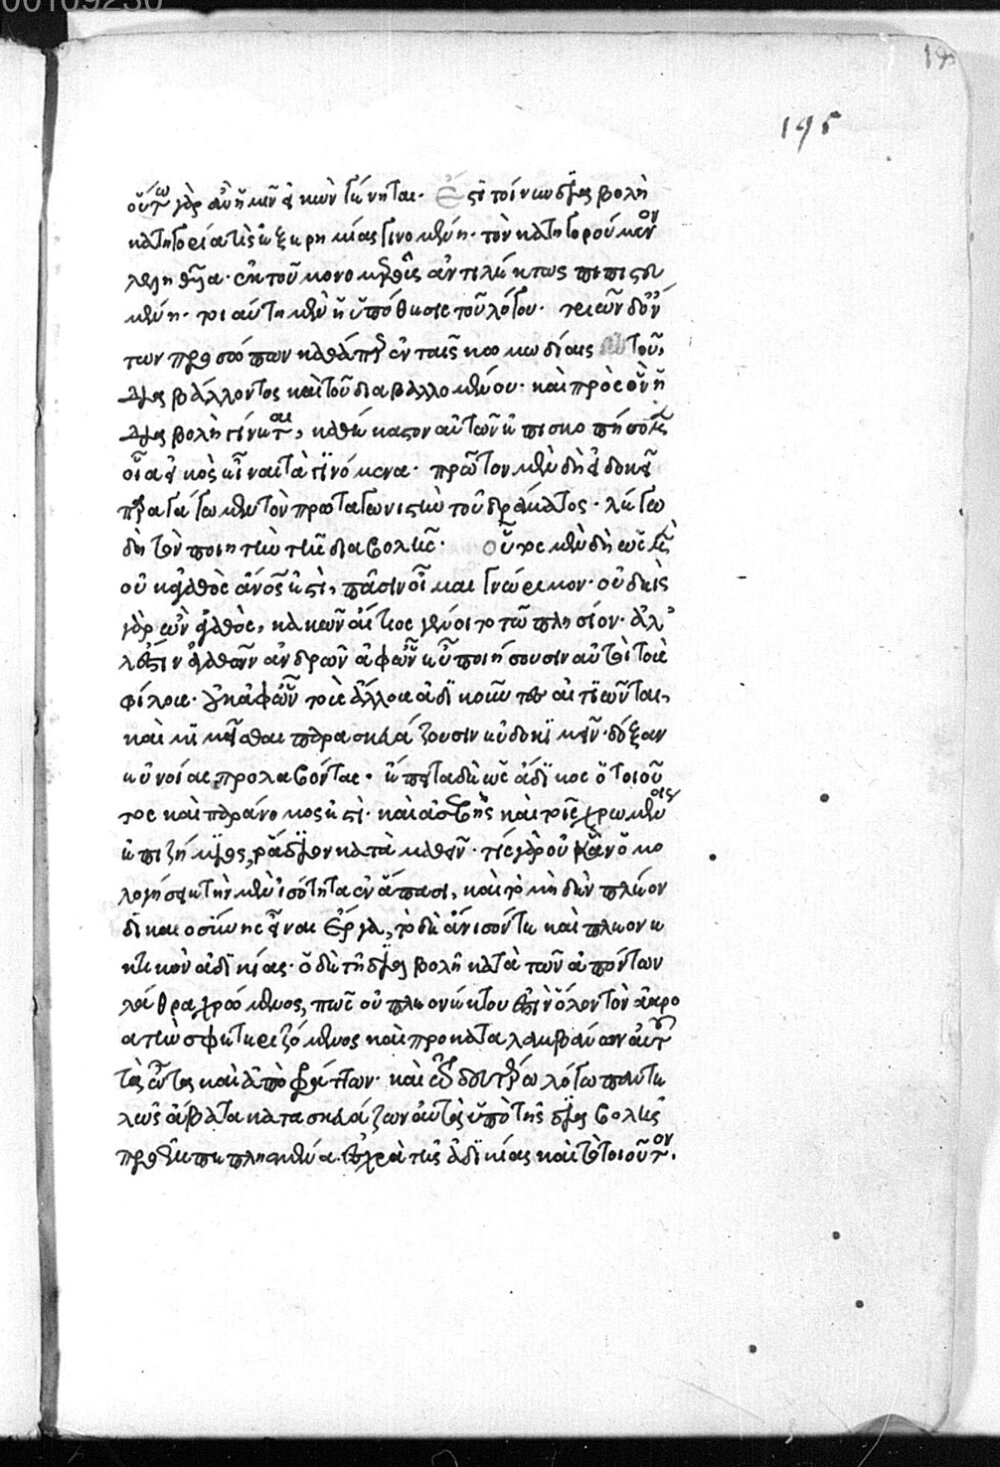 00109230
19
195
οὕτω γὰρ ἂν ἡμῖν ἡ εἰκὼν γένηται. Ἔστι τοίνυν διαβολὴ
κατηγορία τις ἐξ ἐρημίας γινομένη. τὸν κατηγορούμενον
λεληθυῖα. ἐκ τοῦ μονομεροῦς ἀναντιλέκτως πεπιστευ
μένη. τοιαύτη μὲν ἡ ὑπόθεσις τοῦ λόγου. τριῶν δὄν
των προσώπων καθάπερ ἐν ταῖς κωμωδίαις τοῦ
διαβάλλοντος καὶ τοῦ διαβαλλομένου. καὶ πρὸς ὃν ἡ
διαβολὴ γίνεται, καθ' ἕκαστον αὐτῶν ἐπισκοπήσωμεν
οἷα εἰκὸς εἶναι τὰ γινόμενα. πρῶτον μὲν δὴ εἰ δοκεῖ
παραγάγωμεν τὸν πρωταγωνιστὴν τοῦ δράματος. λέγω
δὴ τὸν ποιητὴν τῆς διαβολῆς. οὗτος μὲν δὴ ὡς μὲν
οὐκ ἀγαθὸς ἄνος ἐστὶ, πᾶσιν οἶμαι γνώριμον. οὐδεὶς
γὰρ ὢν ἀγαθὸς, κακῶν αἴτιος γένοιτο τῶ πλησίον. ἀλλ'
ἔστιν ἀγαθῶν ἀνδρῶν ἀφ' ὧν εὖ ποιήσουσιν αὐτοὶ τοὺς
φίλους. οὐκ ἀφ' ὧν τοὺς ἄλλους ἀδικοῦντας αἰτιῶνται,
καὶ μισεῖσθαι παρασκευάζουσιν εὐδοκιμεῖν. δόξαν
εὐνοίας προλαβόντας. ἔπειτα δὲ ὡς ἄδικος ὁ τοιοῦ
τος καὶ παράνομος ἐστὶ. καὶ ἀσεβὴς καὶ τοῖς χρωμένοις
ἐπιζήμιος, ῥάδιον καταμαθεῖν. τίς γὰρ οὐκ ἂν ὁμο
λογήσειε τὴν μὲν ἰσότητα ἐν ἅπασι, καὶ τὸ μηδὲν πλέον
δικαιοσύνης εἶναι ἔργα, τὸ δὲ ἄνισόν τε καὶ πλεονε
κτικὸν ἀδικίας. ὁ δὲ τῆ διαβολῆ κατὰ τῶν ἀπόντων
λάθρα χρώμενος, πῶς οὐ πλεονέκτης ἐστὶν ὅλον τὸν ἀκρο
ατὴν σφετεριζόμενος καὶ προκαταλαμβάνων αὐτοῦ
τὰ ὦτα καὶ ἀποφράττων. καὶ τῶ δευτέρω λόγω παντε
λῶς ἄβατα κατασκευάζων αὐτὰ ὑπὸ τῆς διαβολῆς
προεμπεπλησμένα. ἐσχάτης ἀδικίας καὶ τὸ τοιοῦτον.